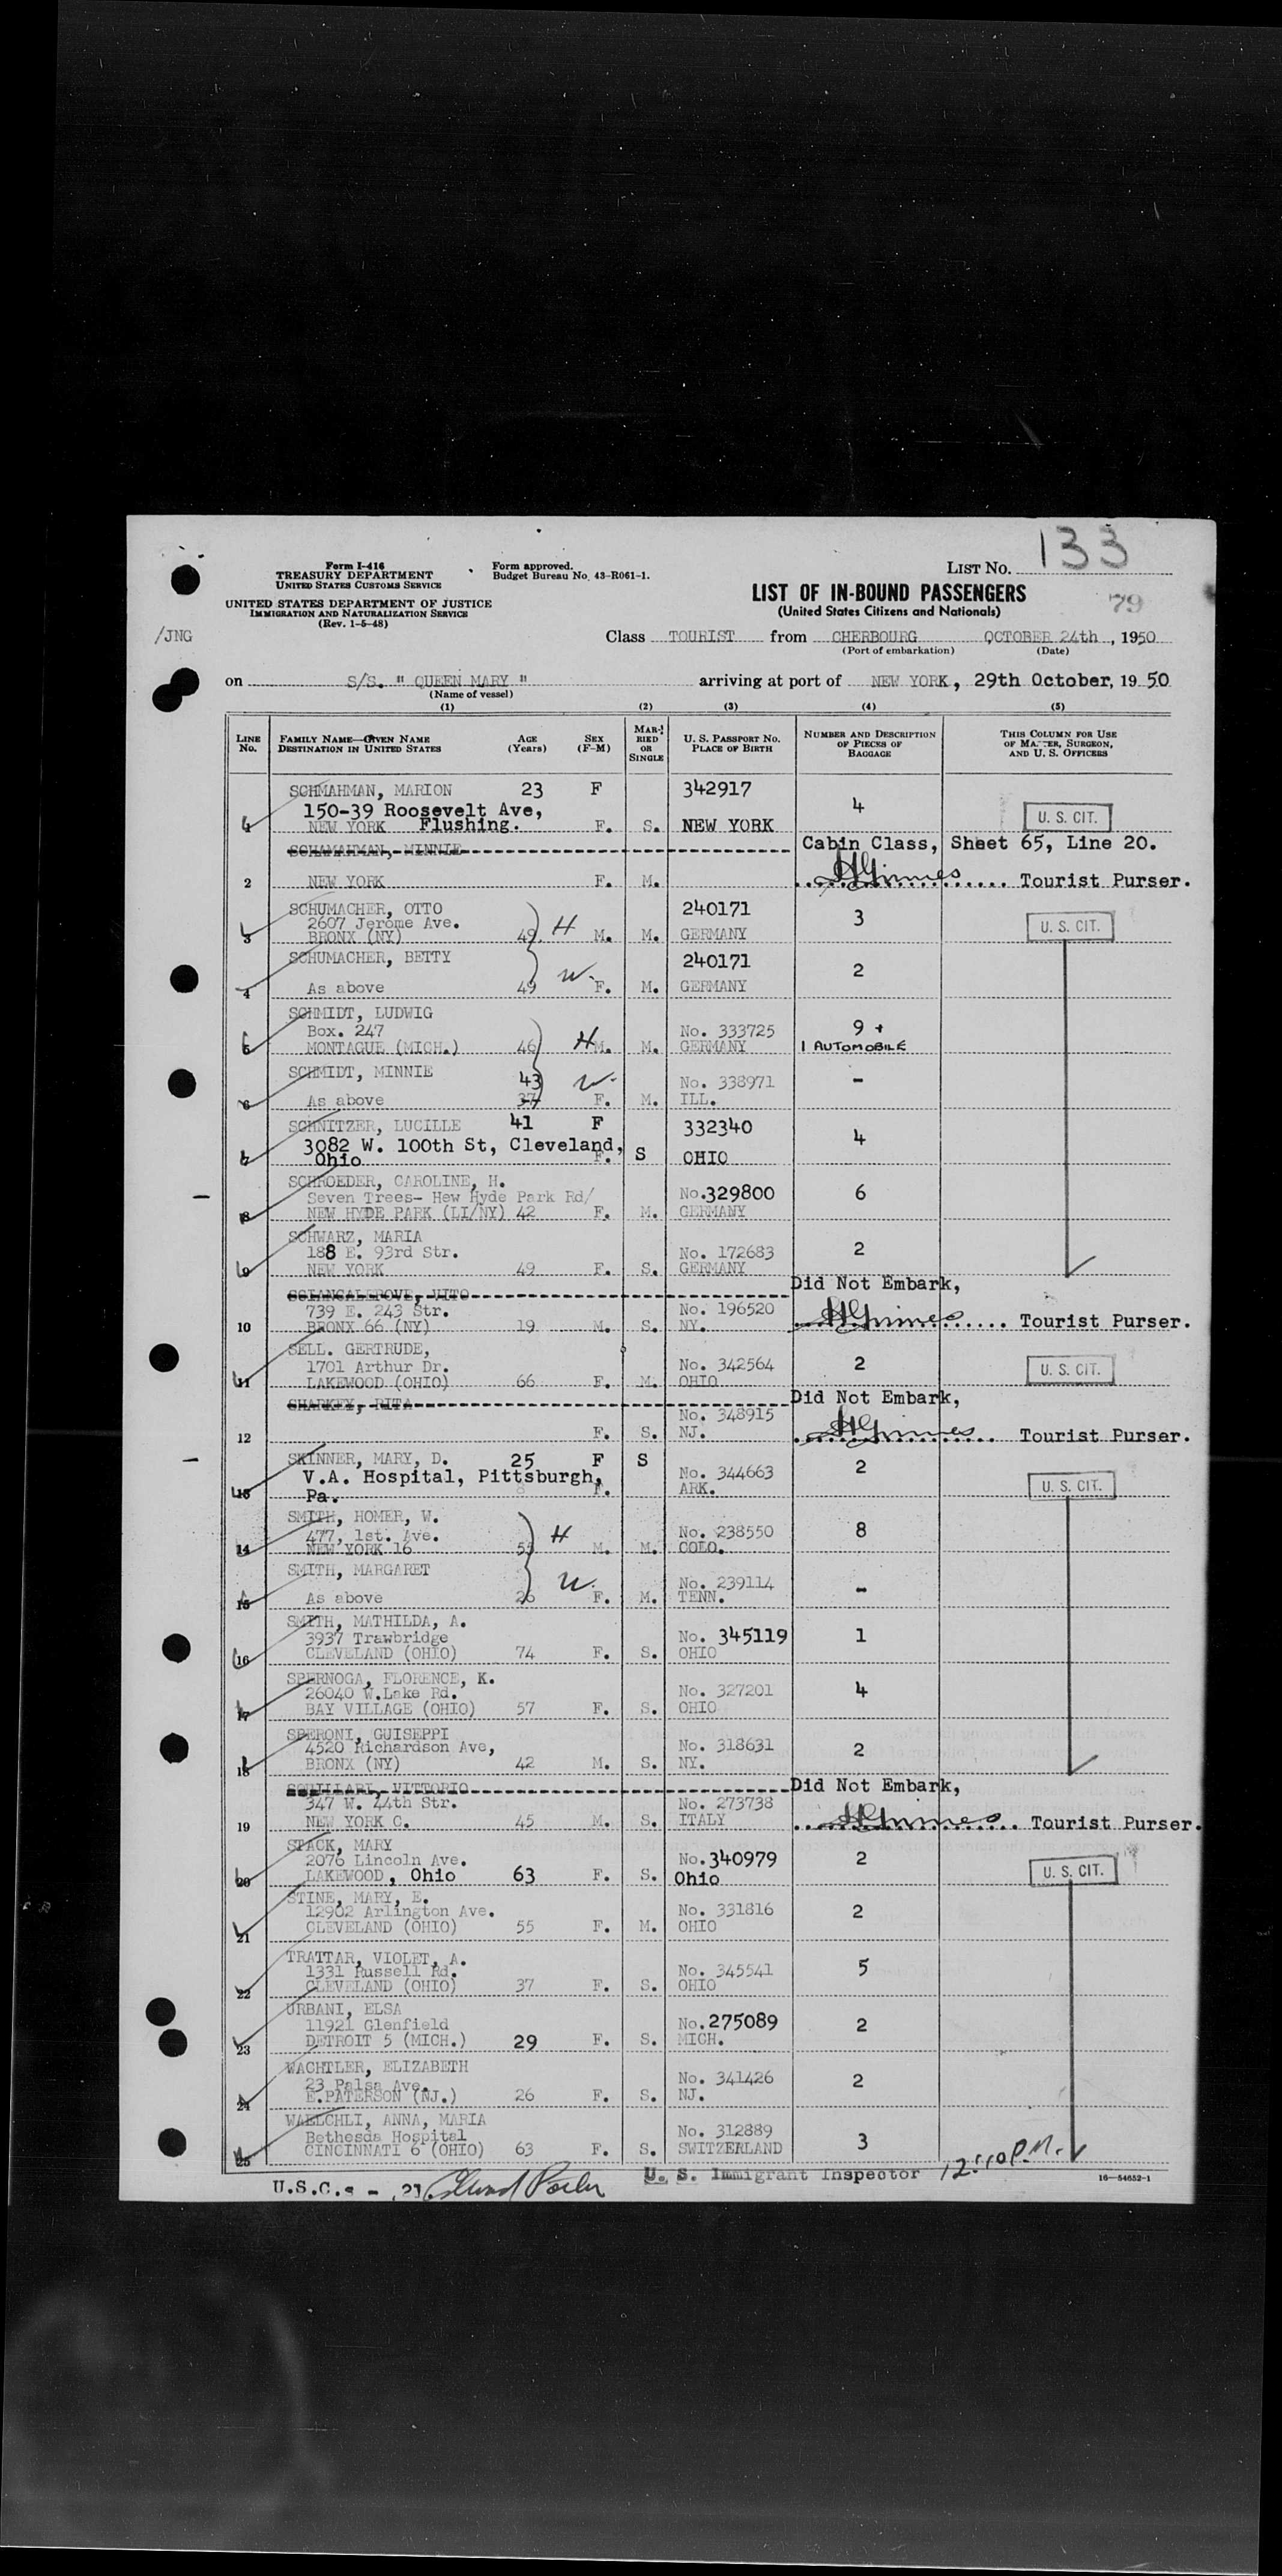 133
LIST No.
Form I-416
TREASURY DEPARTMENT
UNITED STATES CUSTOMS SERVICE
Form approved.
Budget Bureau No. 43-R061-1.
UNITED STATES DEPARTMENT OF JUSTICE
IMMIGRATION AND NATURALIZATION SERVICE
(Rev. 1-5-48)
LIST OF IN-BOUND PASSENGERS
(United States Citizens and Nationals)
79
/JNG
Class TOURIST from CHERBOURG OCTOBER 24th, 1950
(Port of embarkation) (Date)
on S/S. " QUEEN MARY " arriving at port of NEW YORK, 29th October, 1950
(Name of vessel)
(1) (2) (3) (4) (5)
LINE No. FAMILY NAME—GIVEN NAME DESTINATION IN UNITED STATES AGE (Years) SEX (F-M) MARRIED OR SINGLE U. S. PASSPORT No. PLACE OF BIRTH NUMBER AND DESCRIPTION OF PIECES OF BAGGAGE THIS COLUMN FOR USE OF MASTER, SURGEON, AND U. S. OFFICERS
SCHMAHMAN, MARION 23 F 342917 4
150-39 Roosevelt Ave, U. S. CIT.
1 NEW YORK Flushing. F. S. NEW YORK
SCHAMAHMAN, MINNIE Cabin Class, Sheet 65, Line 20.
2 NEW YORK F. M. HGrimes Tourist Purser.
SCHUMACHER, OTTO 240171 3
2607 Jerome Ave. H U. S. CIT.
3 BRONX (NY) 49 M. M. GERMANY
SCHUMACHER, BETTY 240171 2
4 As above 49 W. F. M. GERMANY
SCHMIDT, LUDWIG
Box. 247 No. 333725 9 +
5 MONTAGUE (MICH.) 46 H M. M. GERMANY 1 AUTOMOBILE
SCHMIDT, MINNIE 43 W. No. 338971 -
6 As above 37 F. M. ILL.
SCHNITZER, LUCILLE 41 F 332340 4
3082 W. 100th St, Cleveland,
7 Ohio F. S OHIO
SCHROEDER, CAROLINE, H.
Seven Trees- Hew Hyde Park Rd/ No.329800 6
8 NEW HYDE PARK (LI/NY) 42 F. M. GERMANY
SCHWARZ, MARIA
188 E. 93rd Str. No. 172683 2
9 NEW YORK 49 F. S. GERMANY
Did Not Embark,
739 E. 243 Str. No. 196520
10 BRONX 66 (NY) 19 M. S. NY. HGrimes Tourist Purser.
SELL. GERTRUDE,
1701 Arthur Dr. No. 342564 2 U. S. CIT.
11 LAKEWOOD (OHIO) 66 F. M. OHIO
SHARKEY, RITA Did Not Embark,
No. 348915
12 F. S. NJ. HGrimes Tourist Purser.
SKINNER, MARY, D. 25 F S
V.A. Hospital, Pittsburgh, No. 344663 2
13 Pa. F. ARK. U. S. CIT.
SMITH, HOMER, W.
477, 1st. Ave. H No. 238550 8
14 NEW YORK 16 55 M. M. COLO.
SMITH, MARGARET W. No. 239114 -
15 As above 26 F. M. TENN.
SMITH, MATHILDA, A.
3937 Trawbridge No. 345119 1
16 CLEVELAND (OHIO) 74 F. S. OHIO
SPERNOGA, FLORENCE, K.
26040 W.Lake Rd. No. 327201 4
17 BAY VILLAGE (OHIO) 57 F. S. OHIO
SPERONI, GUISEPPI
4520 Richardson Ave, No. 318631 2
18 BRONX (NY) 42 M. S. NY.
SQUILLARI, VITTORIO Did Not Embark,
347 W. 44th Str. No. 273738
19 NEW YORK C. 45 M. S. ITALY HGrimes Tourist Purser.
STACK, MARY
2076 Lincoln Ave. No.340979 2 U. S. CIT.
20 LAKEWOOD, Ohio 63 F. S. Ohio
STINE, MARY, E.
12902 Arlington Ave. No. 331816 2
21 CLEVELAND (OHIO) 55 F. M. OHIO
TRATTAR, VIOLET, A.
1331 Russell Rd. No. 345541 5
22 CLEVELAND (OHIO) 37 F. S. OHIO
URBANI, ELSA
11921 Glenfield No.275089 2
23 DETROIT 5 (MICH.) 29 F. S. MICH.
WACHTLER, ELIZABETH
23 Palsa Ave. No. 341426 2
24 E.PATERSON (NJ.) 26 F. S. NJ.
WAELCHLI, ANNA, MARIA
Bethesda Hospital No. 312889 3
25 CINCINNATI 6 (OHIO) 63 F. S. SWITZERLAND
U.S.C.s - 21 U. S. Immigrant Inspector 12:10 P.M.
16—54652-1